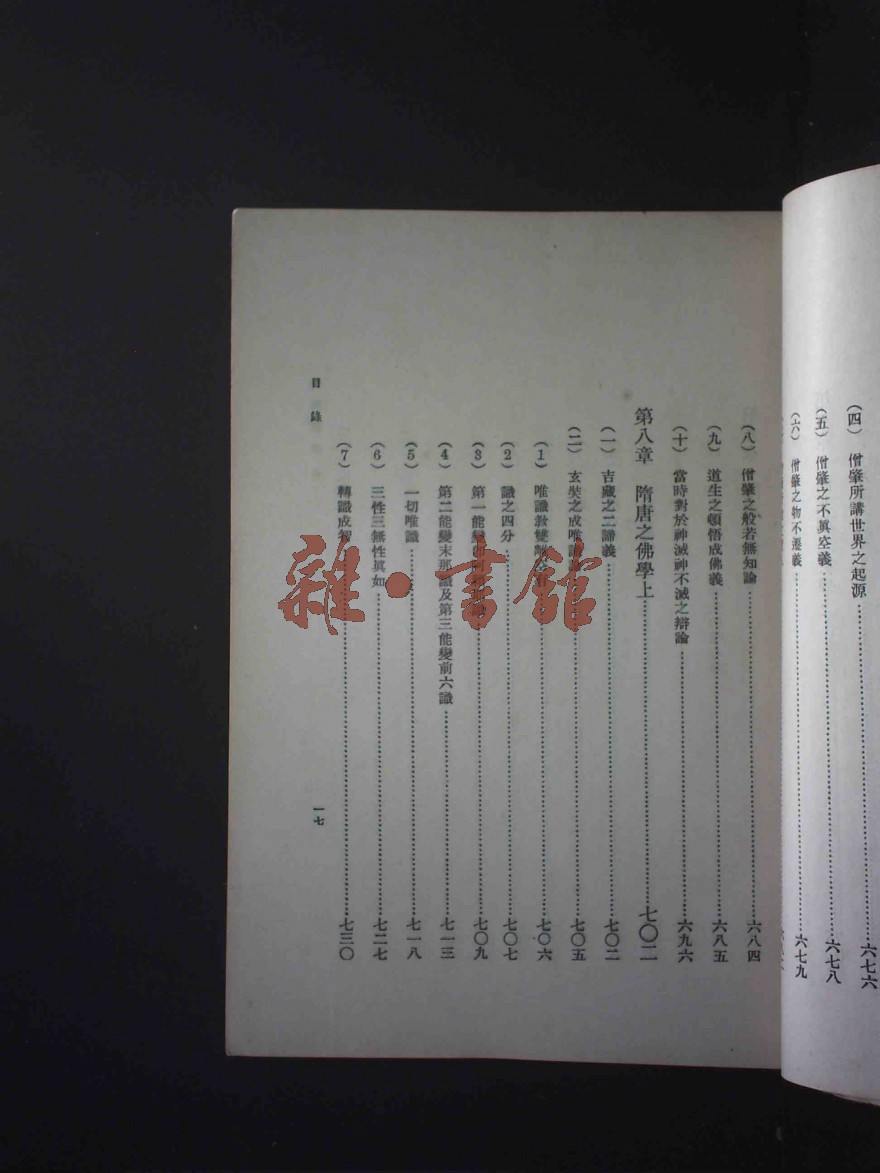 (四) 僧肇所講世界之起源……六七六
(五) 僧肇之不眞空義……六七八
(六) 僧肇之物不遷義……六七九
(八) 僧肇之般若無知論……六八四
(九) 道生之頓悟成佛義……六八五
(十) 當時對於神滅神不滅之辯論……六九六
第八章 隋唐之佛學上……七〇二
(一) 吉藏之二諦義……七〇二
(二) 玄奘之成唯識……七〇五
(1) 唯識教雙離……七〇六
(2) 識之四分……七〇七
(3) 第一能變……七〇九
(4) 第二能變末那識及第三能變前六識……七一三
(5) 一切唯識……七一八
(6) 三性三無性眞如……七二七
(7) 轉識成智……七三〇
目錄
一七
雜·書館